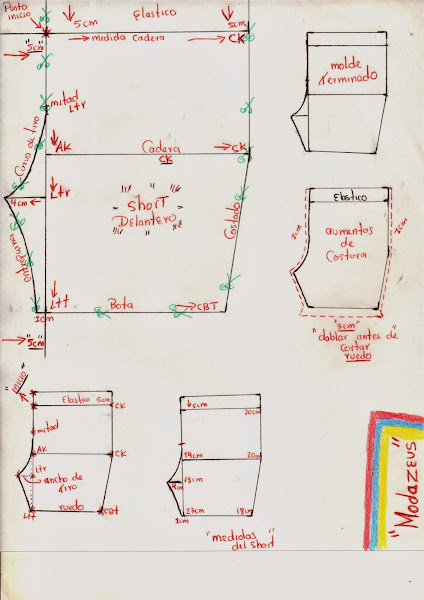 Punto
inicio
Elastico
5cm
5cm
"5cm"
medida Cadera
CK
mitad
Ltr
Curva de tiro
AK
Cadera
CK
CK
4cm
Ltr
Short
Delantero
Costado
Entrepierna
Ltt
Bota
CBT
1cm
"5cm"
molde
Terminado
Elastico
2cm
aumentos
de
Costura
2cm
"3cm"
"doblar antes de
Cortar
ruedo"
"inicio"
Elastico 5cm
CK
mitad
AK
CK
Ltr
ancho de
Tiro
ruedo
Ltt
CBT
5cm
20cm
14cm
20cm
19cm
4cm
27cm
18cm
1cm
"medidas
del short"
"Modazeus"